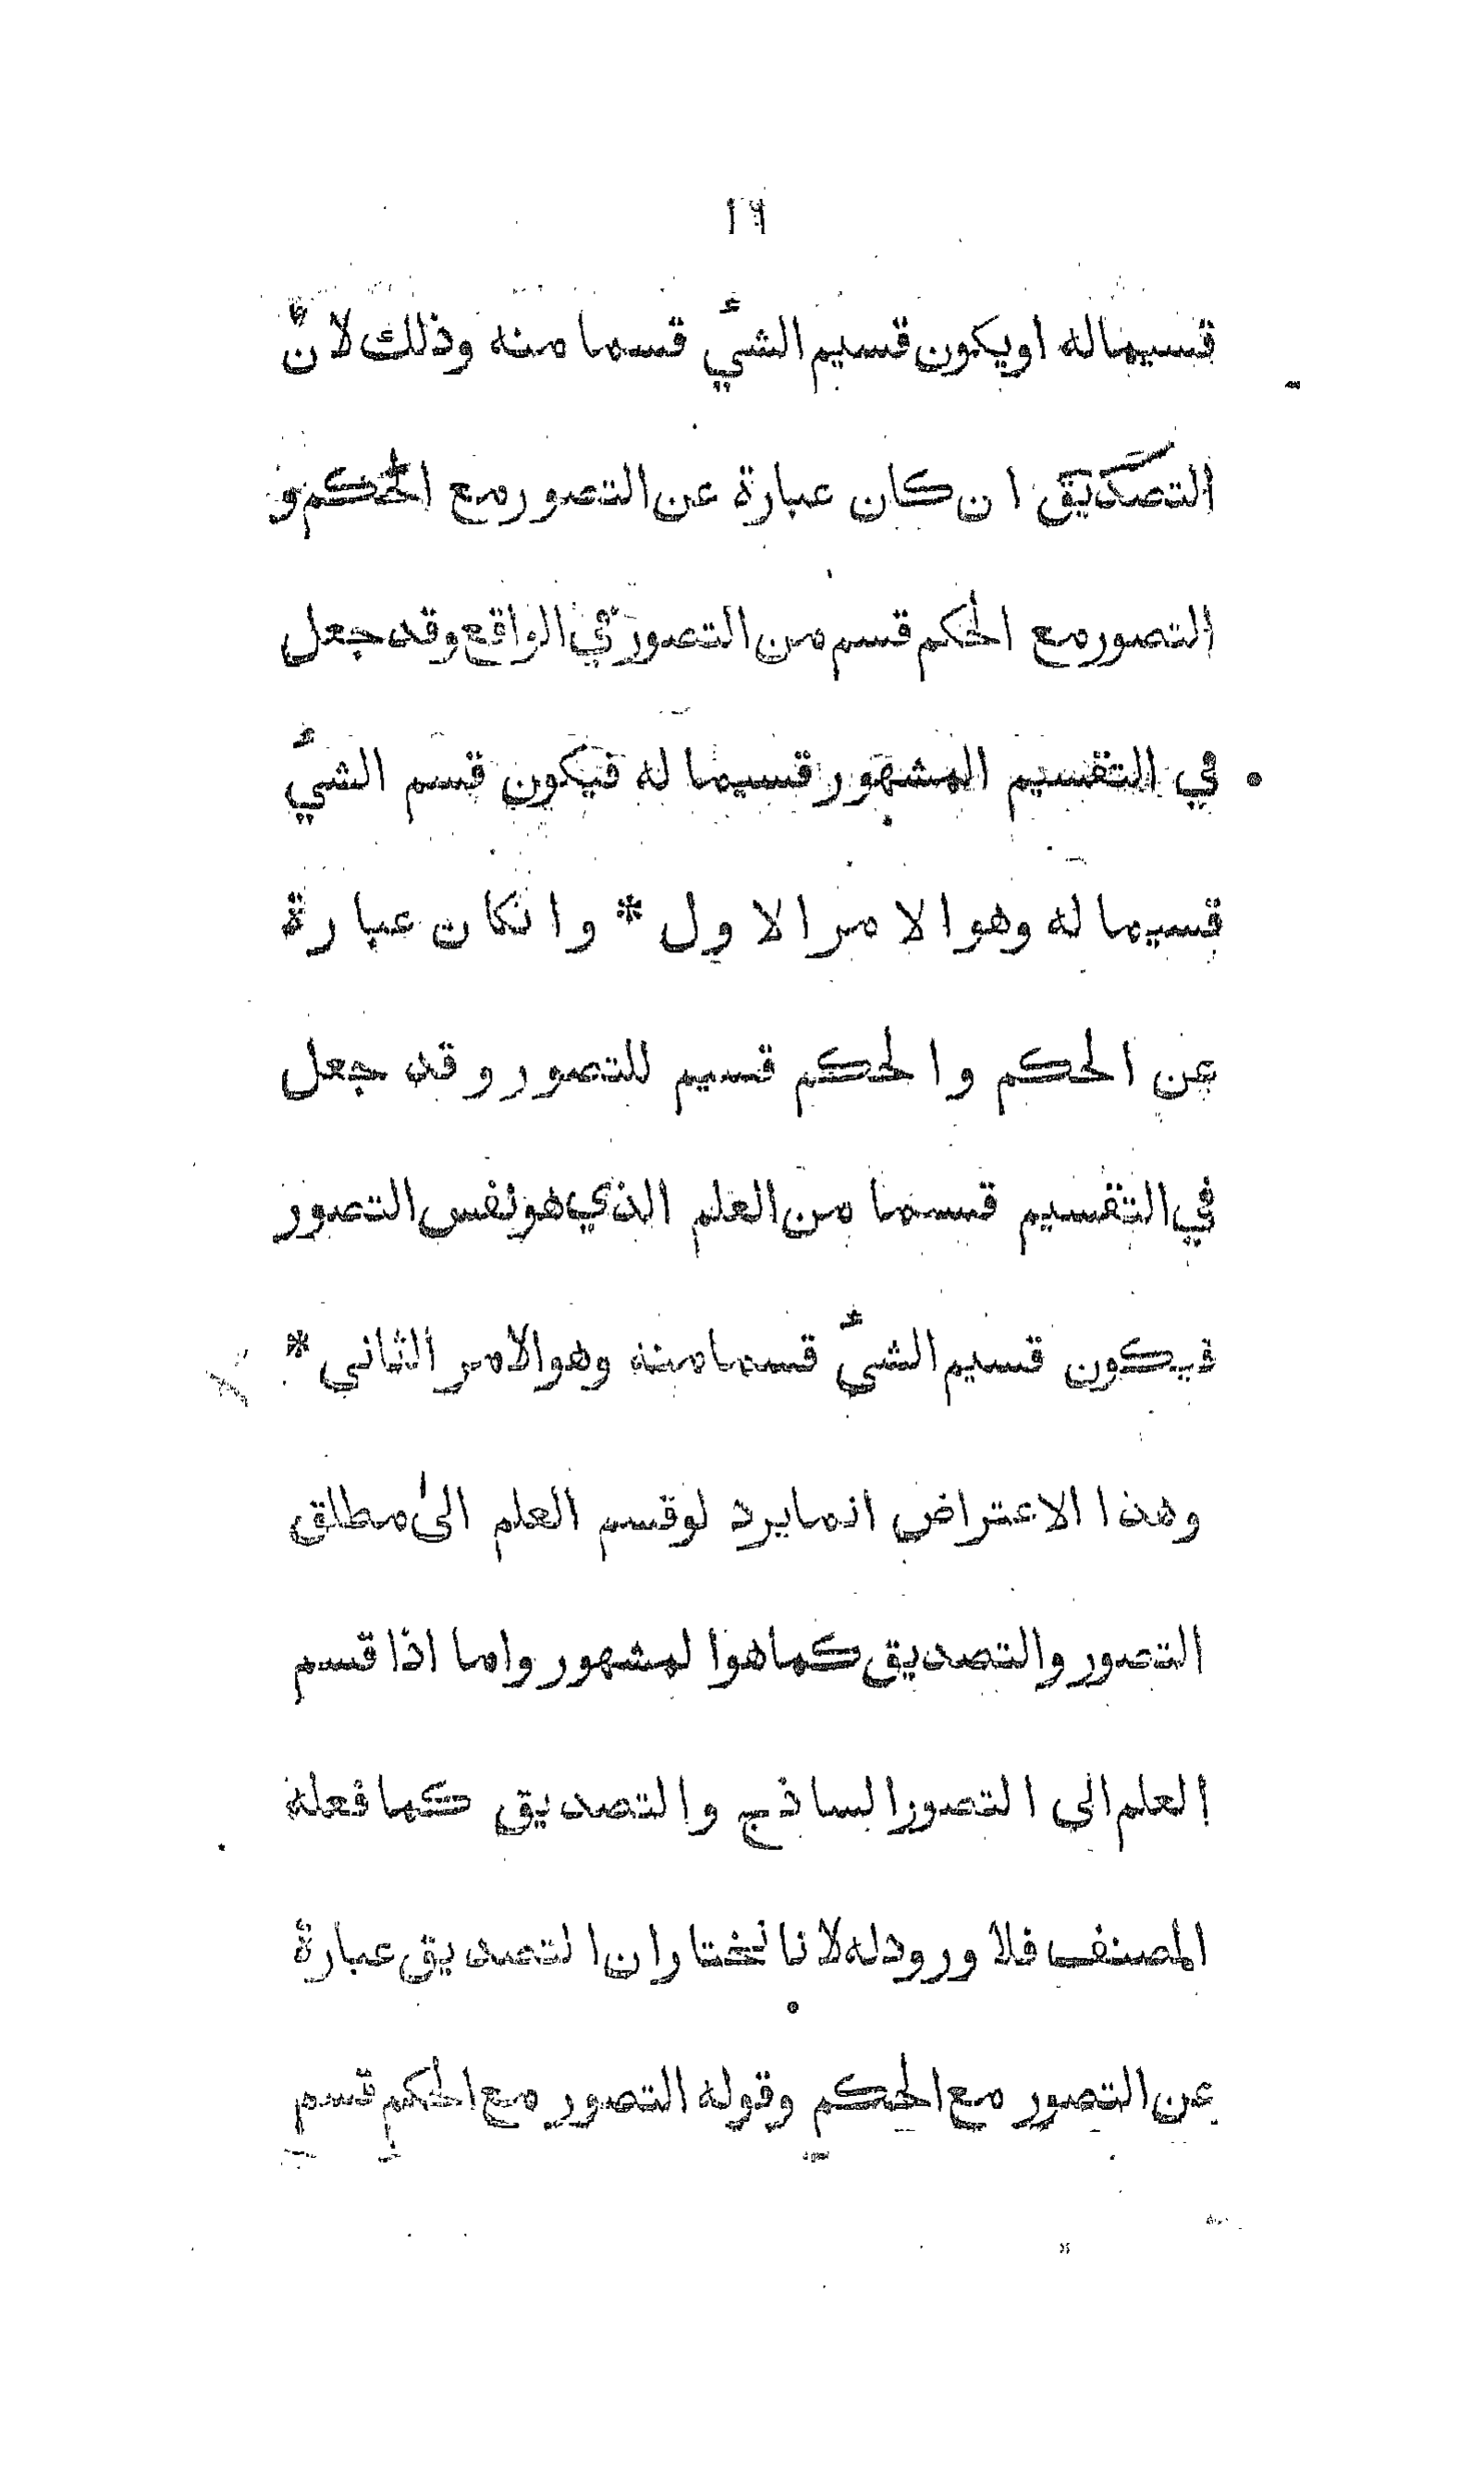 ١٦
قسيما له او يكون قسيم الشيء قسما منه وذلك لانّ
التصديق ان كان عبارة عن التصور مع الحكم و
التصور مع الحكم قسم من التصور في الواقع وقد جعل
في التقسيم المشهور قسيما له فيكون قسم الشيء
قسيما له وهو الامر الاول * وانكان عبارة
عن الحكم والحكم قسيم للتصور وقد جعل
في التقسيم قسما من العلم الذي هو نفس التصور
فيكون قسيم الشيء قسما منه وهو الامر الثاني *
وهذا الاعتراض انما يرد لو قسم العلم الى مطلق
التصور والتصديق كما هو المشهور واما اذا قسم
العلم الى التصور الساذج والتصديق كما فعله
المصنف فلا ورود له لانا نختار ان التصديق عبارة
عن التصور مع الحكم وقوله التصور مع الحكم قسم